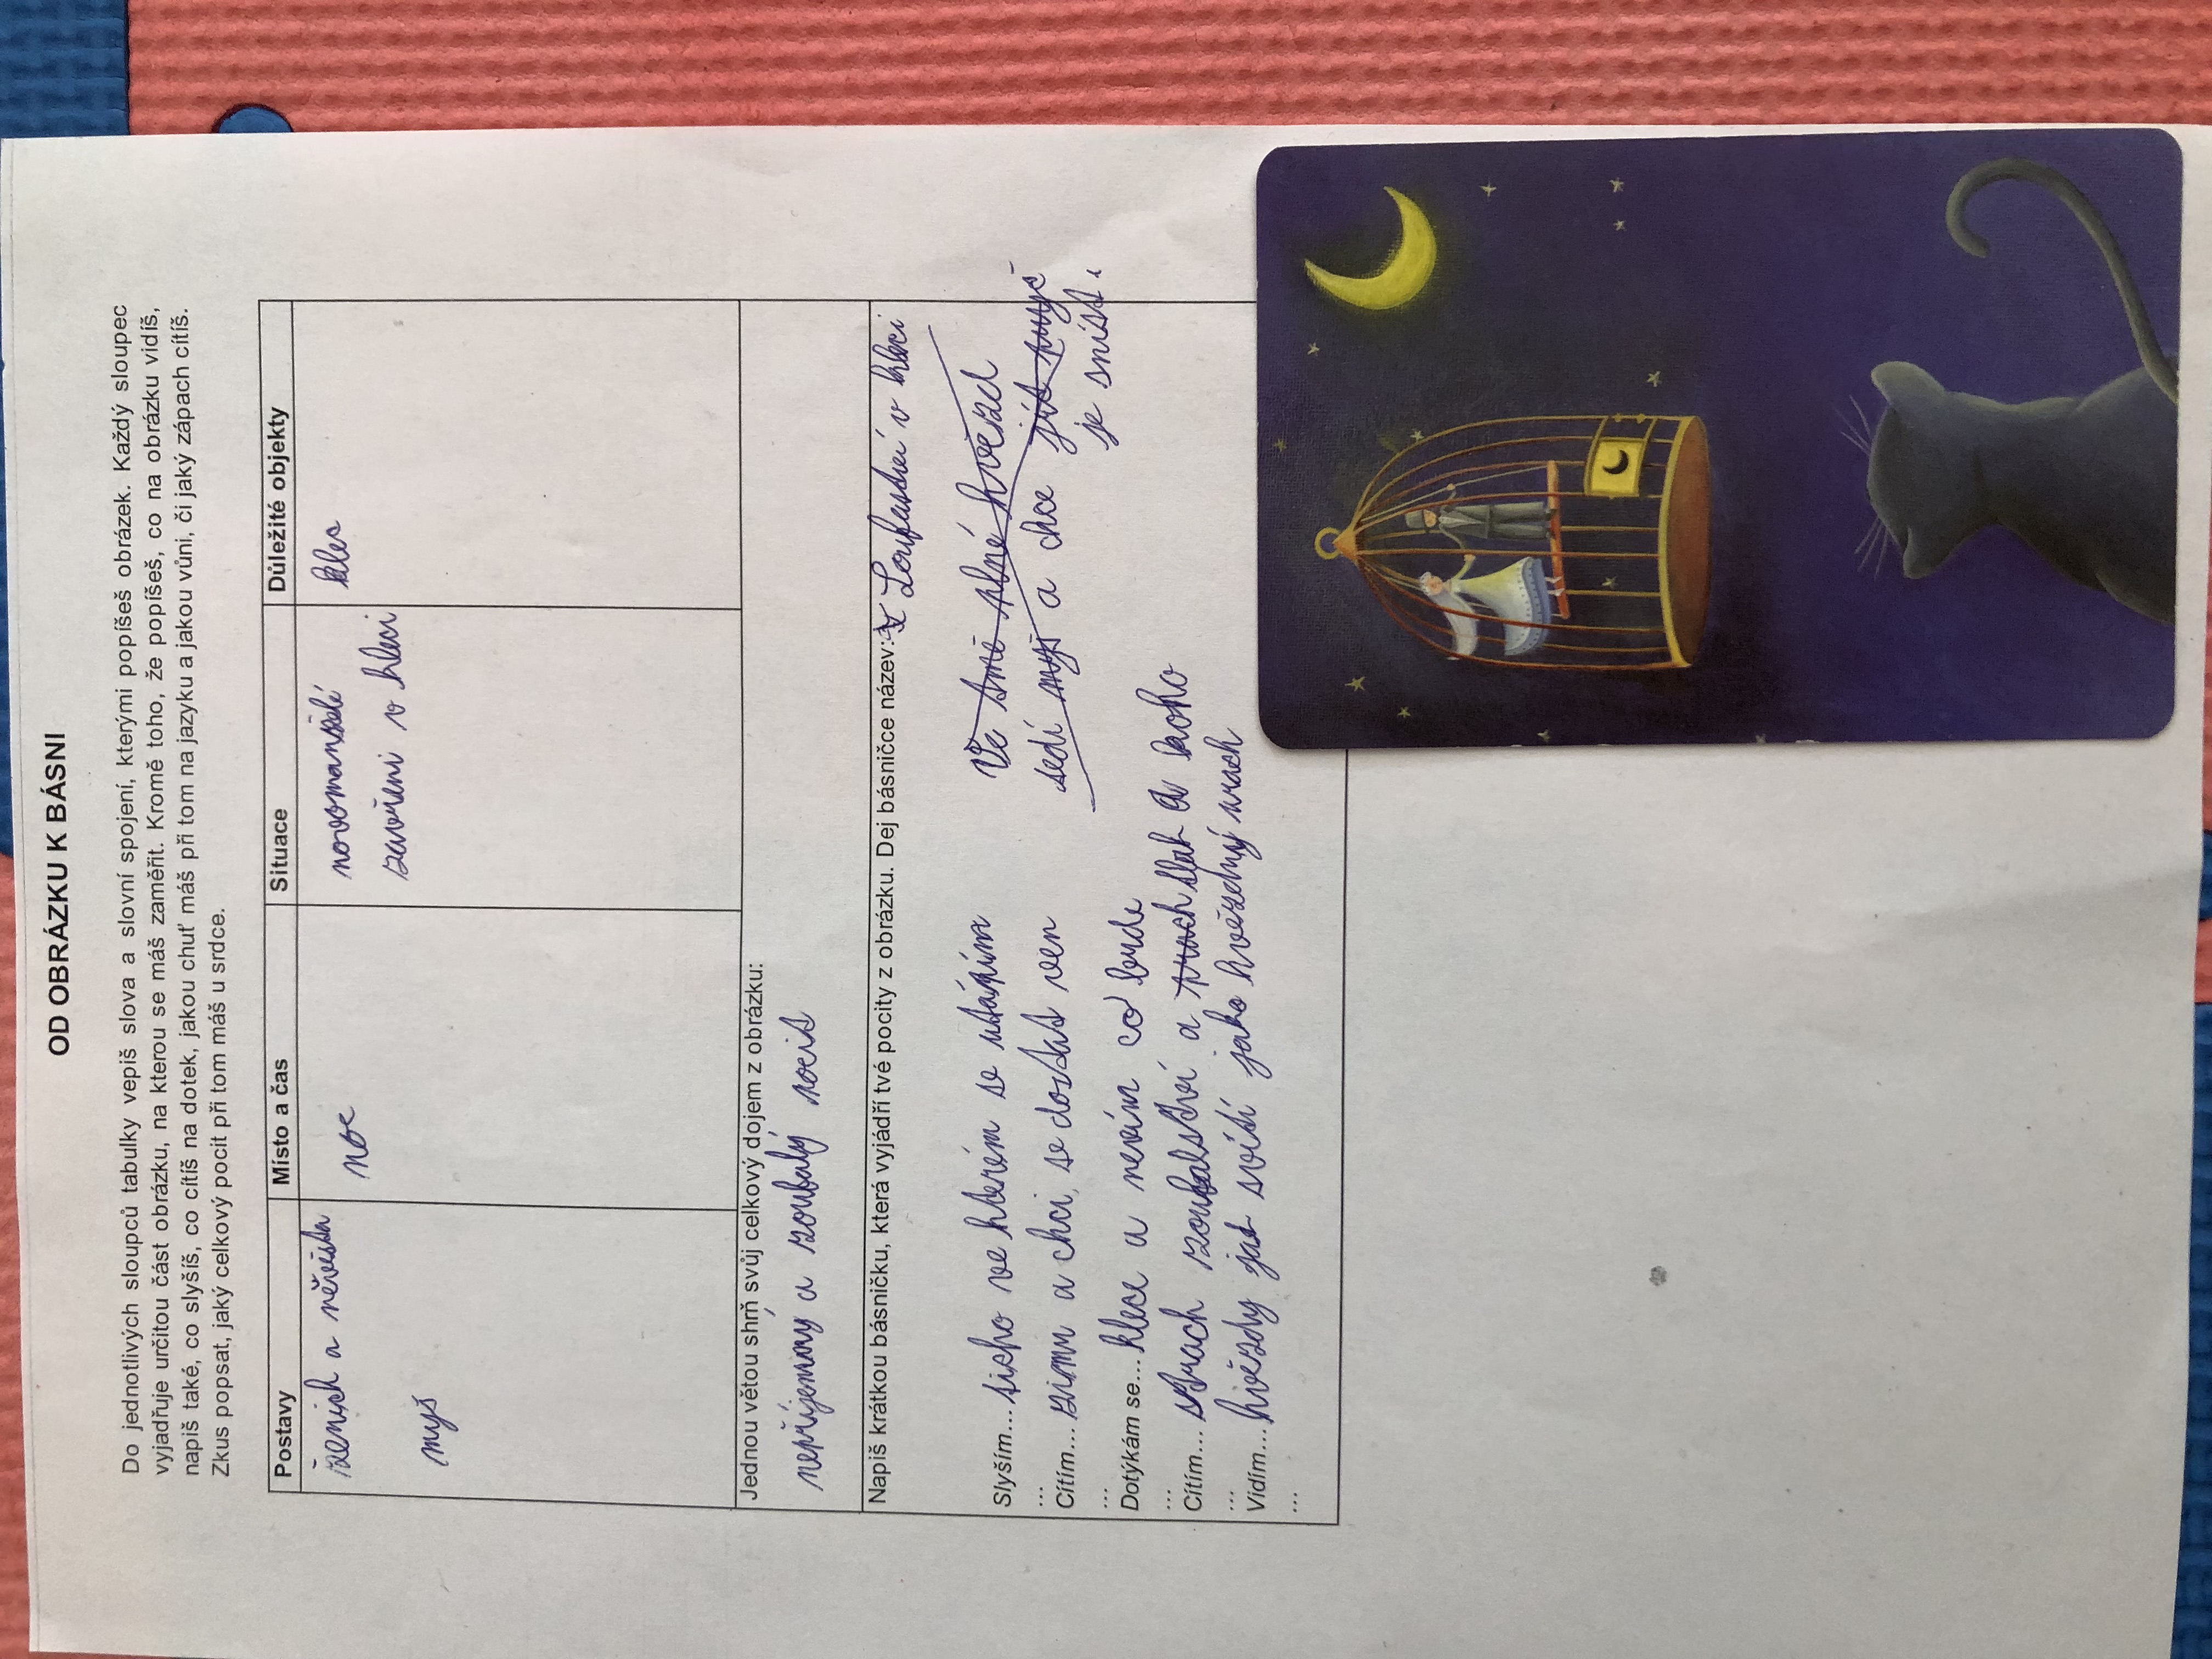 OD OBRÁZKU K BÁSNI
Do jednotlivých sloupců tabulky vepiš slova a slovní spojení, kterými popíšeš obrázek. Každý sloupec
vyjadřuje určitou část obrázku, na kterou se máš zaměřit. Kromě toho, že popíšeš, co na obrázku vidíš,
napiš také, co slyšíš, co cítíš na dotek, jakou chuť máš při tom na jazyku a jakou vůni, či jaký zápach cítíš.
Zkus popsat, jaký celkový pocit při tom máš u srdce.
Postavy
Místo a čas
Situace
Důležité objekty
ženich a něvěsta
myš
noc
novomanželé
zavřeni v kleci
klec
Jednou větou shrň svůj celkový dojem z obrázku:
nepříjemný a zoufalý pocit
Napiš krátkou básničku, která vyjádří tvé pocity z obrázku. Dej básničce název: Zoufalství v kleci
Ve tmě plné hvězd
sedí myš a chce jíst
je sníst.
Slyším... ticho ve kterém se utápím
...
Cítím... zimu a chci, se dostat ven
...
Dotýkám se... klece a nevím co bude
...
Cítím... strach zoufalství a a toho
...
Vidím... hvězdy jak svítí jako hvězdný prach
...